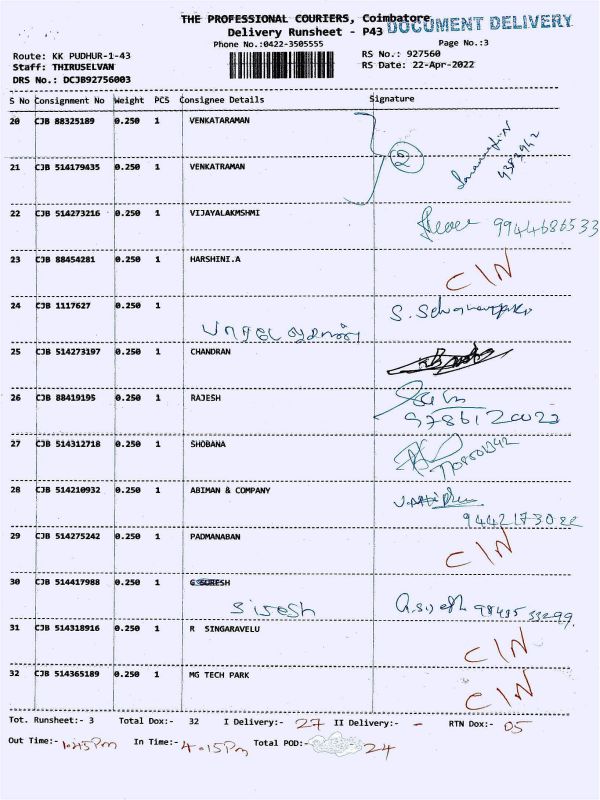 THE PROFESSIONAL COURIERS, Coimbatore
DOCUMENT DELIVERY
Delivery Runsheet - P43
Phone No.:0422-3505555
Page No.:3
Route: KK PUDHUR-1-43
RS No.: 927560
Staff: THIRUSELVAN
RS Date: 22-Apr-2022
DRS No.: DCJB92756003
S No Consignment No Weight PCS Consignee Details Signature
20 CJB 88325189 0.250 1 VENKATARAMAN
2
21 CJB 514179435 0.250 1 VENKATRAMAN
22 CJB 514273216 0.250 1 VIJAYALAKMSHMI
9944686533
23 CJB 88454281 0.250 1 HARSHINI.A C/N
24 CJB 1117627 0.250 1
25 CJB 514273197 0.250 1 CHANDRAN
26 CJB 88419195 0.250 1 RAJESH
27 CJB 514312718 0.250 1 SHOBANA
28 CJB 514210932 0.250 1 ABIMAN & COMPANY
29 CJB 514275242 0.250 1 PADMANABAN C/N
30 CJB 514417988 0.250 1 G SURESH
31 CJB 514318916 0.250 1 R SINGARAVELU C/N
32 CJB 514365189 0.250 1 MG TECH PARK C/N
Tot. Runsheet:- 3 Total Dox:- 32 I Delivery:- 27 II Delivery:- - RTN Dox:- 05
Out Time:- 1.45Pm In Time:- 4.15Pm Total POD:- 24